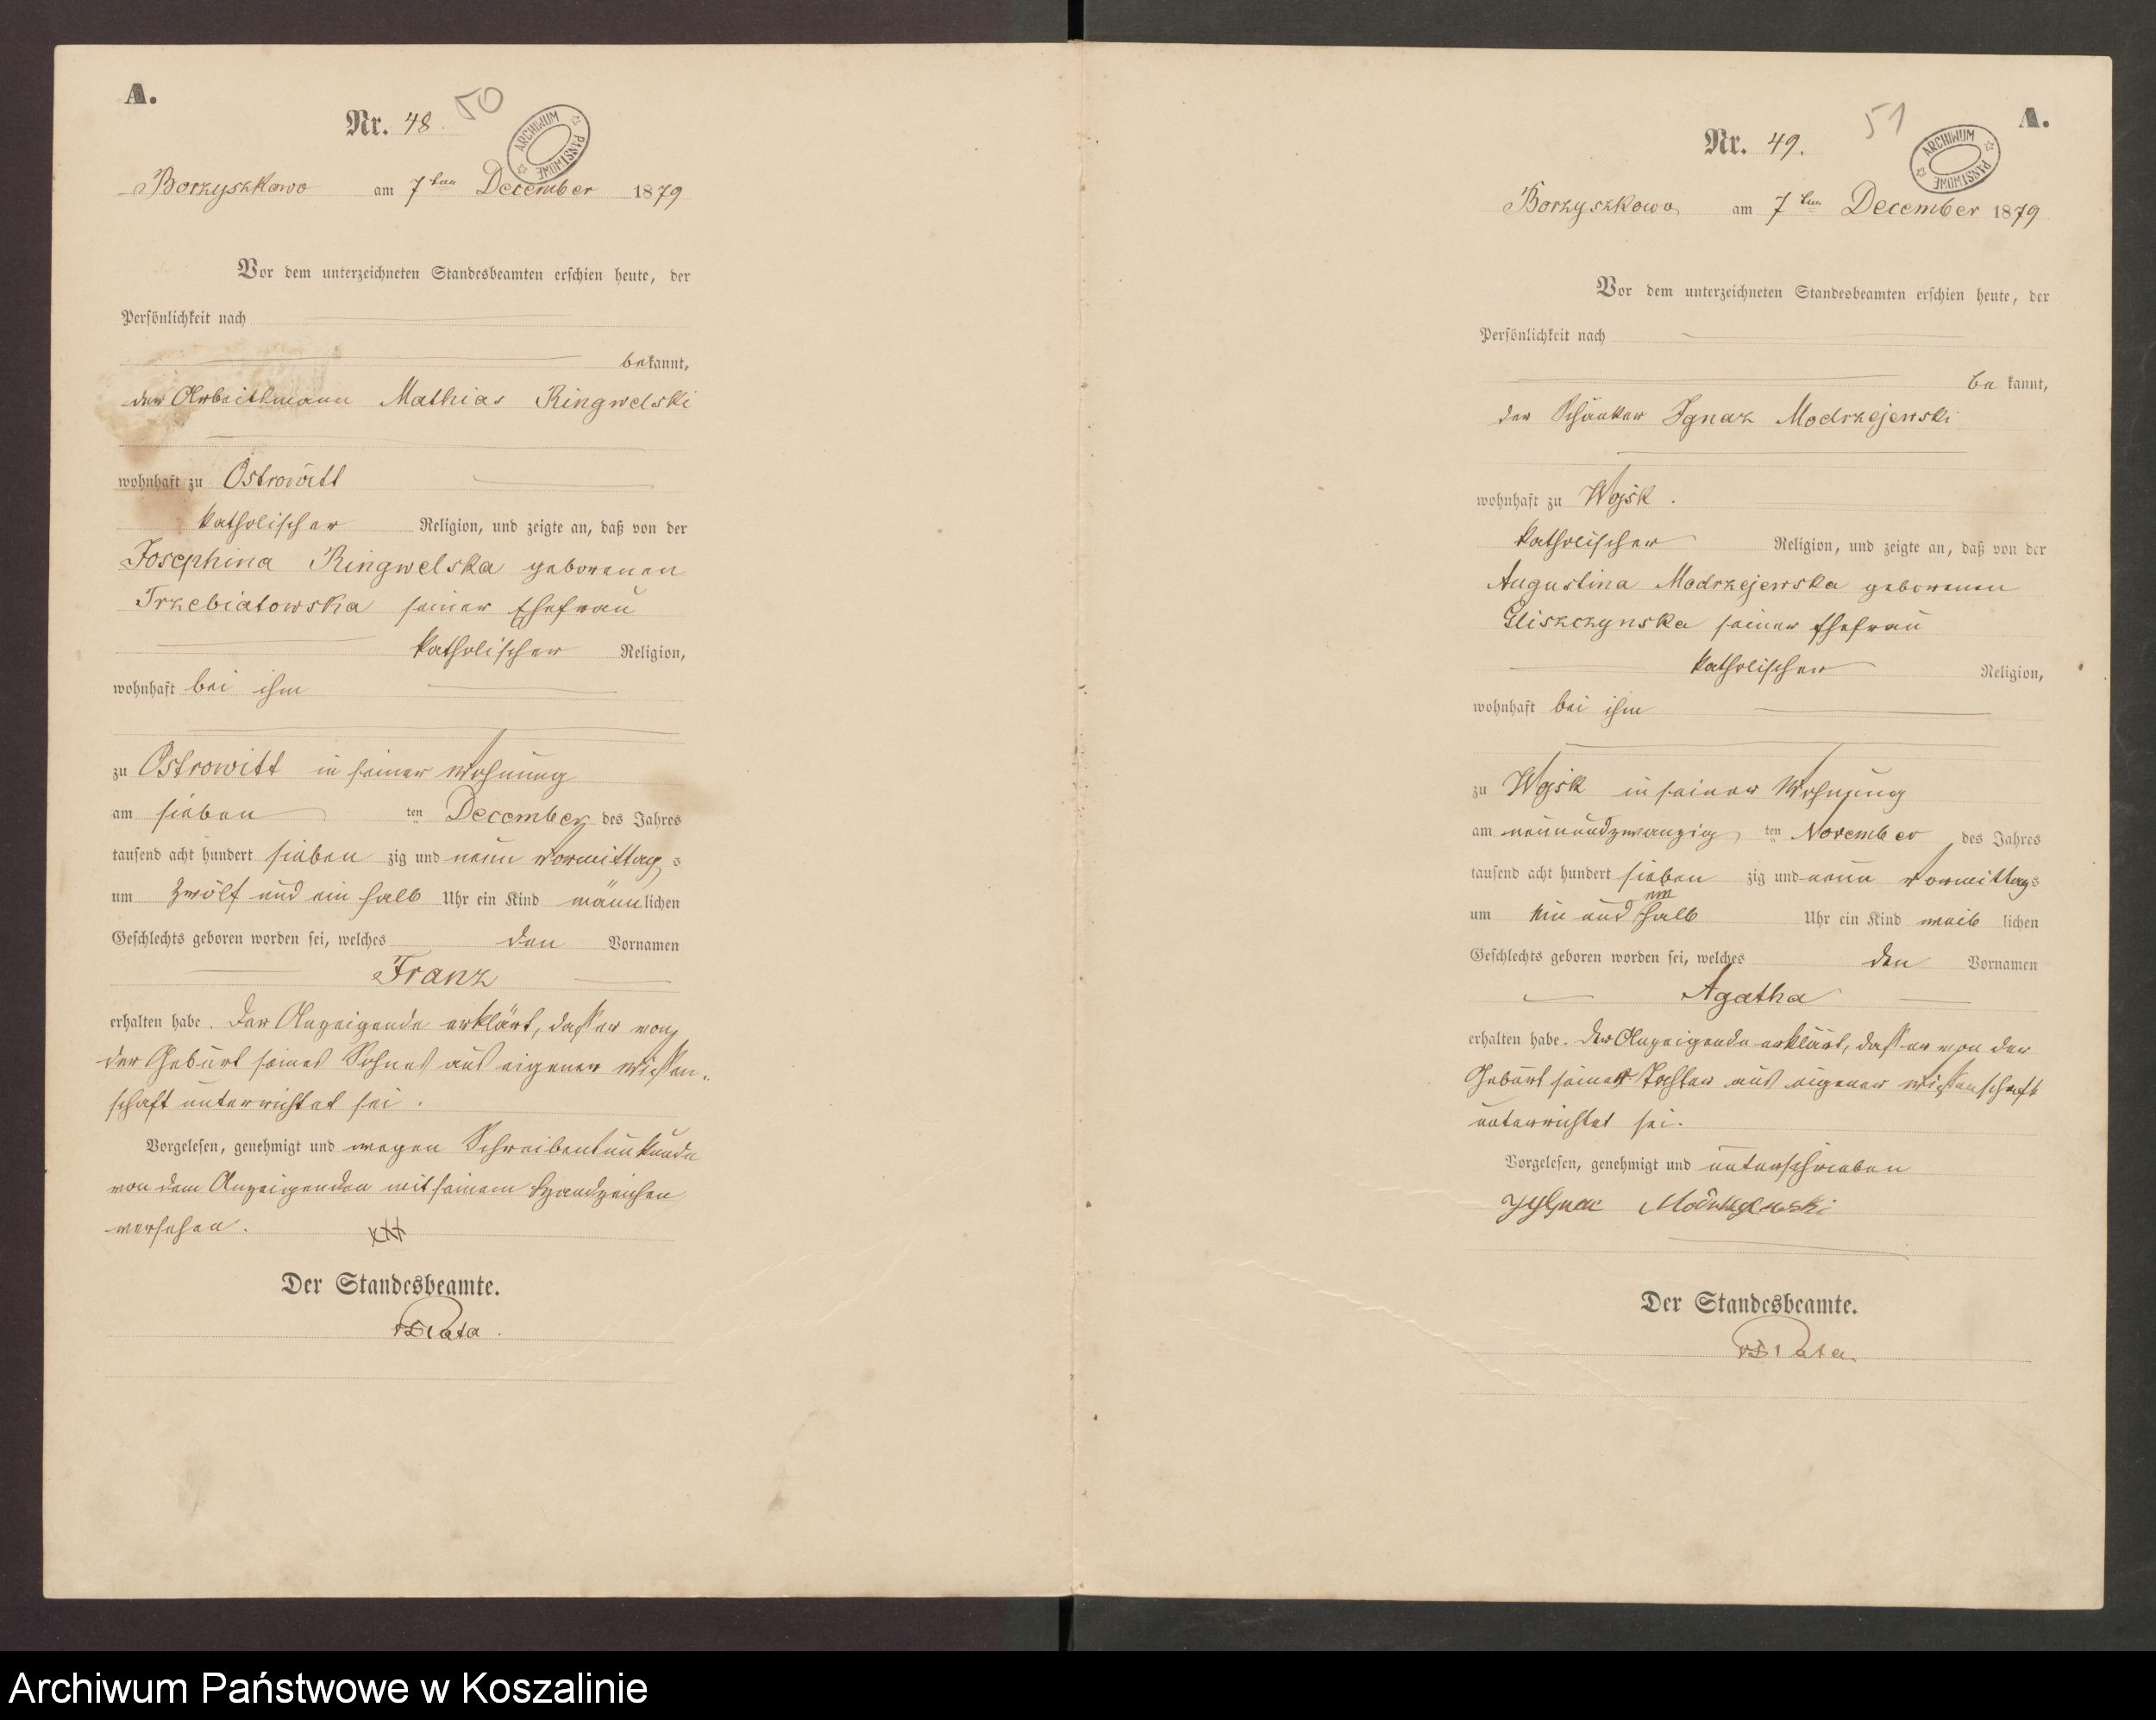 A.
Nr. 48. 50
ARCHIWUM PAŃSTWOWE
Borzyszkowo am 7ten December 1879
Vor dem unterzeichneten Standesbeamten erschien heute, der
Persönlichkeit nach
bekannt,
der Arbeitsmann Mathias Ringwelski
wohnhaft zu Ostrowitt
katholischer Religion, und zeigte an, daß von der
Josephina Ringwelska geborenen
Trzebiatowska seiner Ehefrau
katholischer Religion,
wohnhaft bei ihm
zu Ostrowitt in seiner Wohnung
am sieben ten December des Jahres
tausend acht hundert sieben zig und neun Vormittags
um zwölf und ein halb Uhr ein Kind männlichen
Geschlechts geboren worden sei, welches den Vornamen
Franz
erhalten habe. Der Anzeigende erklärt, daß er von
der Geburt seines Sohnes aus eigener Wissen-
schaft unterrichtet sei.
Vorgelesen, genehmigt und wegen Schreibensunkunde
von dem Anzeigenden mit seinem Handzeichen
versehen. XXX
Der Standesbeamte.
A.
Nr. 49. 51
ARCHIWUM PAŃSTWOWE
Borzyszkowo am 7ten December 1879
Vor dem unterzeichneten Standesbeamten erschien heute, der
Persönlichkeit nach
bekannt,
der Schänker Ignaz Modrzejewski
wohnhaft zu Wojsk.
katholischer Religion, und zeigte an, daß von der
Augustina Modrzejewska geborenen
Gliszczynska seiner Ehefrau
katholischer Religion,
wohnhaft bei ihm
zu Wojsk in seiner Wohnung
am neunundzwanzig ten November des Jahres
tausend acht hundert sieben zig und neun Vormittags
um ein und ein halb Uhr ein Kind weiblichen
Geschlechts geboren worden sei, welches den Vornamen
Agatha
erhalten habe. Der Anzeigende erklärt, daß er von der
Geburt seiner Tochter aus eigener Wissenschaft
unterrichtet sei.
Vorgelesen, genehmigt und unterschrieben
Der Standesbeamte.
Archiwum Państwowe w Koszalinie